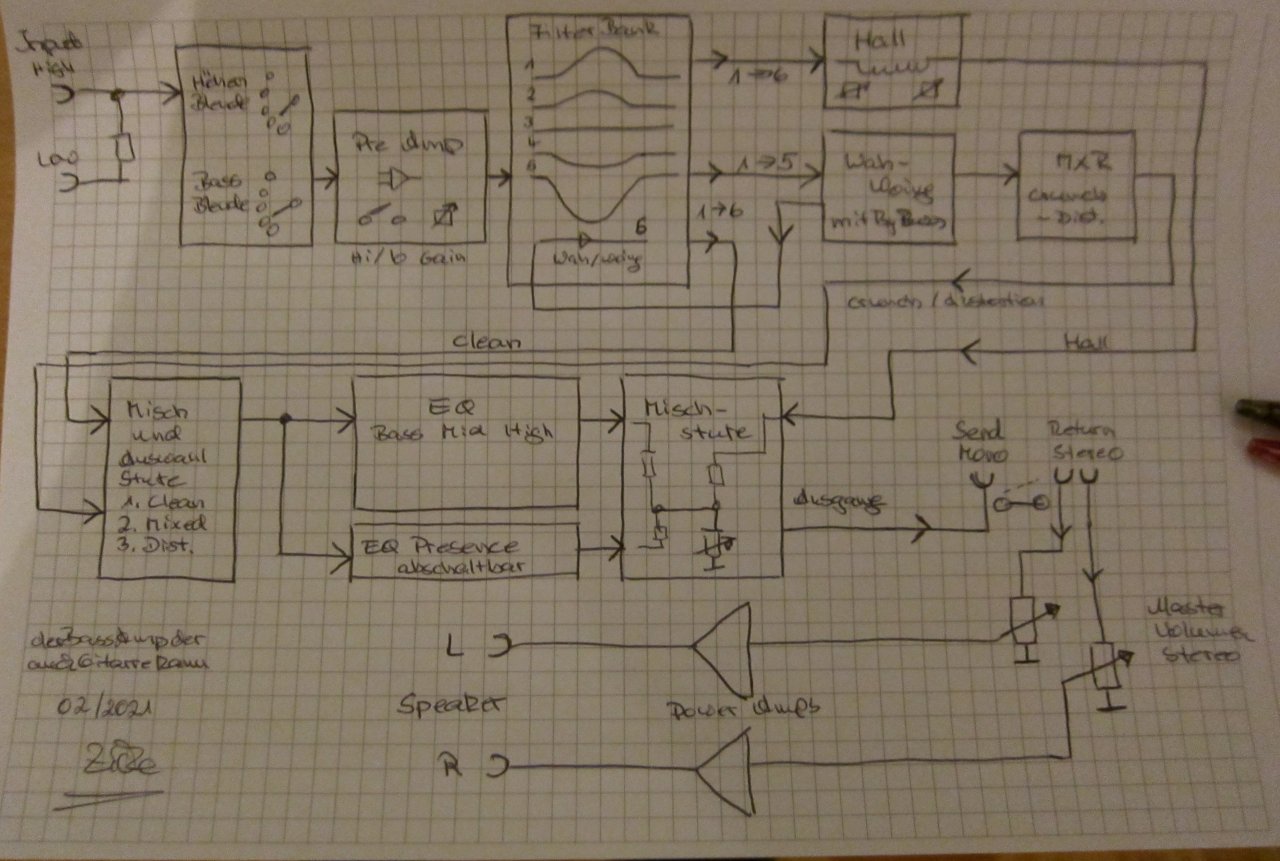 Input
High
Low
Höhen
Blende
Bass
Blende
Pre Amp
Hi/Lo Gain
Filter Bank
1
2
3
4
5
6
Wah/Voicing
1→6
1→5
1→6
Hall
Wah-
Voicing
mit ByPass
MXR
Crunch
-Dist.
crunch / distortion
Clean
Hall
Misch
und
Auswahl
Stufe
1. Clean
2. Mixed
3. Dist.
EQ
Bass Mid High
EQ Presence
abschaltbar
Misch-
stufe
Ausgang
Send
Mono
Return
Stereo
Master
Volume
Stereo
L
Speaker
R
Power Amps
der Bass Amp der
auch Gitarre kann
02/2021